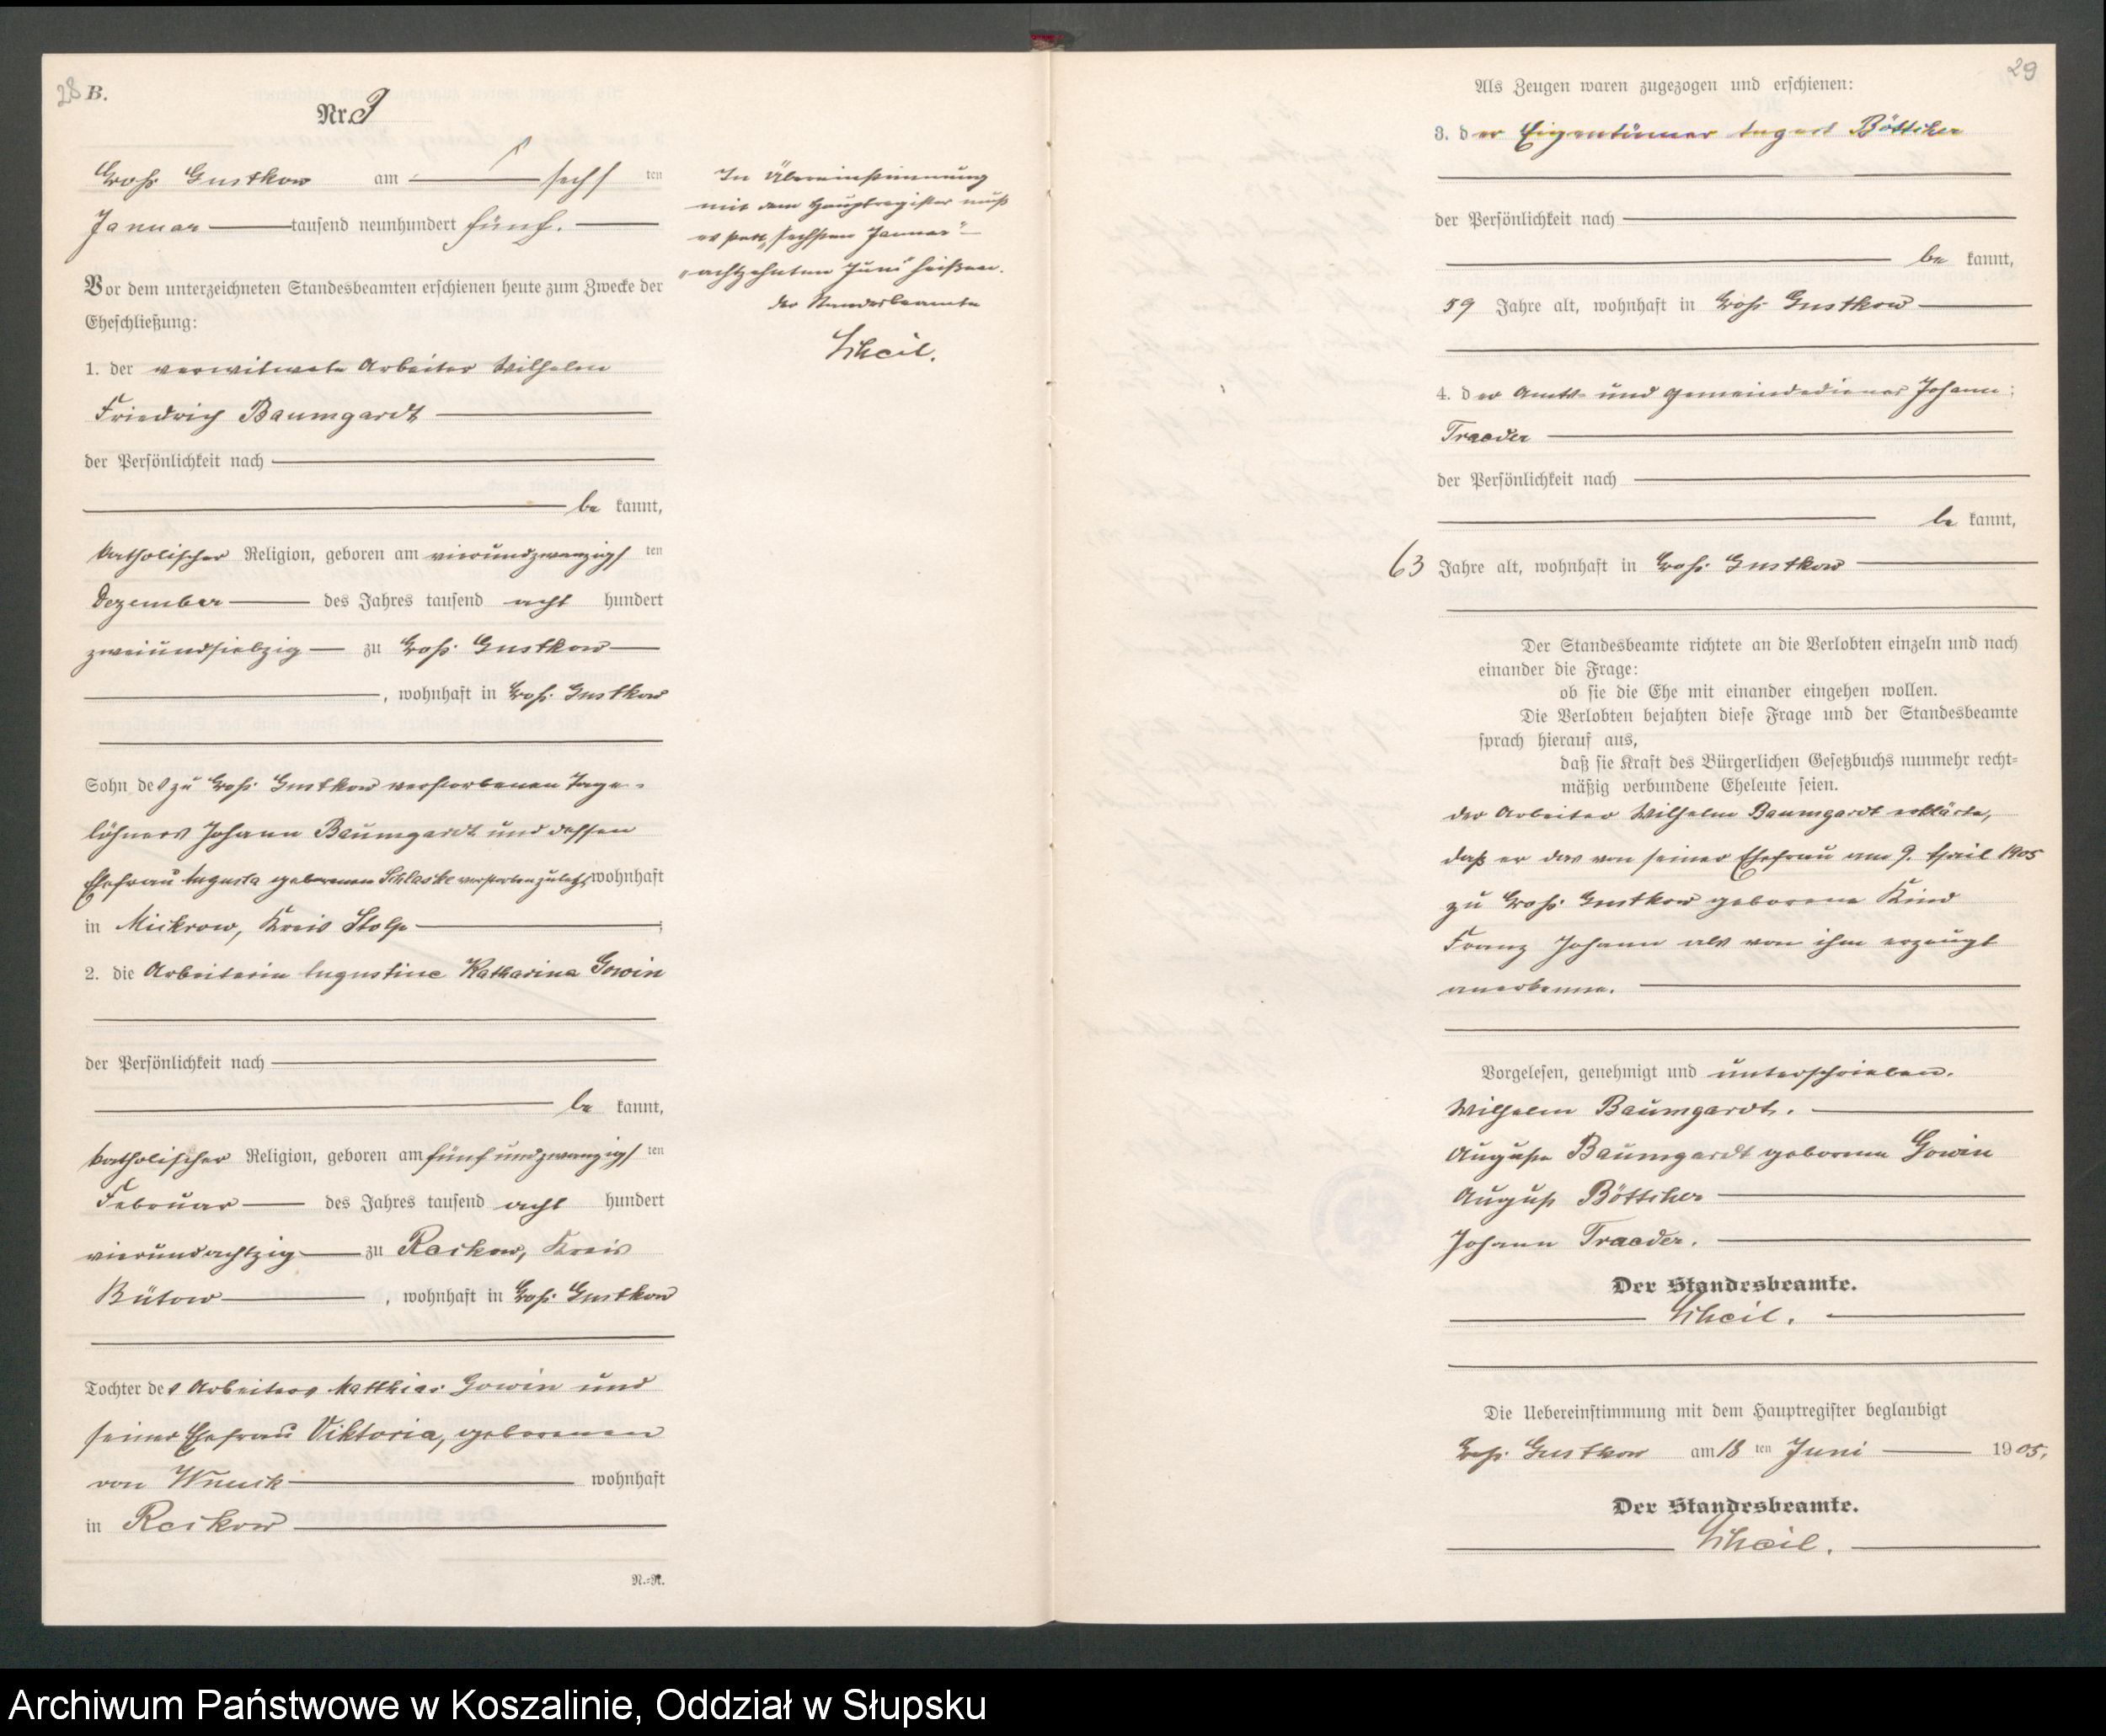 28 B.
Nr. 9
Groß Gustkow am sechsten
Januar tausend neunhundert fünf.
Vor dem unterzeichneten Standesbeamten erschienen heute zum Zwecke der
Eheschließung:
1. der verwitwete Arbeiter Wilhelm
Friedrich Baumgardt
der Persönlichkeit nach
be kannt,
katholischer Religion, geboren am vierundzwanzigsten
Dezember des Jahres tausend acht hundert
zweiundsiebzig zu Groß Gustkow
, wohnhaft in Groß Gustkow
Sohn des zu Groß Gustkow verstorbenen Tage-
löhners Johann Baumgardt und dessen
Ehefrau Augusta geborenen Schlaske verstorben zuletzt wohnhaft
in Mickrow, Kreis Stolp ;
2. die Arbeiterin Augustine Katharina Gowin
der Persönlichkeit nach
be kannt,
katholischer Religion, geboren am fünfundzwanzigsten
Februar des Jahres tausend acht hundert
vierundachtzig zu Reckow, Kreis
Bütow , wohnhaft in Groß Gustkow
Tochter des Arbeiters Matthias Gowin und
seiner Ehefrau Viktoria, geborenen
von Wnuck wohnhaft
in Reckow
N.=N.
In Übereinstimmung
mit dem Hauptregister muß
es statt „sechsten Januar“
„achtzehnten Juni“ heißen.
der Standesbeamte
Scheil.
29
Als Zeugen waren zugezogen und erschienen:
3. der Eigentümer August Böttcher
der Persönlichkeit nach
be kannt,
59 Jahre alt, wohnhaft in Groß Gustkow
4. der Amts- und Gemeindediener Johann
Traeder
der Persönlichkeit nach
be kannt,
63 Jahre alt, wohnhaft in Groß Gustkow
Der Standesbeamte richtete an die Verlobten einzeln und nach
einander die Frage:
ob sie die Ehe mit einander eingehen wollen.
Die Verlobten bejahten diese Frage und der Standesbeamte
sprach hierauf aus,
daß sie Kraft des Bürgerlichen Gesetzbuchs nunmehr recht=
mäßig verbundene Eheleute seien.
der Arbeiter Wilhelm Baumgardt erklärte,
daß er das von seiner Ehefrau am 9. April 1905
zu Groß Gustkow geborene Kind
Franz Johann als von ihm erzeugt
anerkenne.
Vorgelesen, genehmigt und unterschrieben.
Wilhelm Baumgardt.
Auguste Baumgardt geborene Gowin
August Böttcher
Johann Traeder.
Der Standesbeamte.
Scheil.
Die Uebereinstimmung mit dem Hauptregister beglaubigt
Groß Gustkow am 18 ten Juni 1905.
Der Standesbeamte.
Scheil.
Archiwum Państwowe w Koszalinie, Oddział w Słupsku